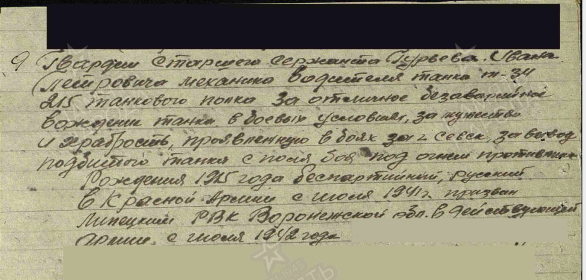 9 Гвардии Старшего Сержанта Гурьева Ивана
Петровича механика водителя танка т-34
215 танкового полка за отличное безаварийное
вождение танка в боевых условиях, за мужество
и храбрость, проявленную в боях за г. Севск, за вывод
подбитого танка с поля боя под огнем противника
Рождения 1915 года беспартийный, русский
в Красной Армии с июля 1941 г. призван
Липецким РВК Воронежской обл. в действующей
Армии с июля 1942 года